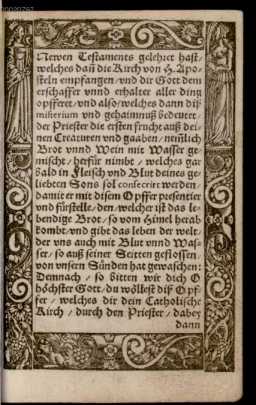 Newen Testaments gelehret hast/
welches dañ die Kirch von H. Apo-
steln empfangen/vnd dir Gott dem
erschaffer vnnd erhalter aller ding
opfferet/vnd also/welches dann diß
misterium vnd gehaimnuß bedeutet
der Priester die ersten frucht auß dei-
nen Creaturen vnd gaaben/nemlich
Brot vnnd Wein mit Wasser ge-
mischt/herfür nimbt/welches gar
bald in Fleisch vnd Blut deines ge-
liebten Sons sol consecrirt werden/
damit er mit disem Opffer presentier
vnd fürstelle/den/welcher ist das le-
bendige Brot/so vom Himel herab
kombt/vnd gibt das leben der welt/
der vns auch mit Blut vnnd Was-
ser/so auß seiner Seitten geflossen/
von vnsern Sünden hat gewaschen:
Demnach/so bitten wir dich O
höchster Gott/du wöllest diß Opf-
fer/welches dir dein Catholische
Kirch/durch den Priester/dabey
dann